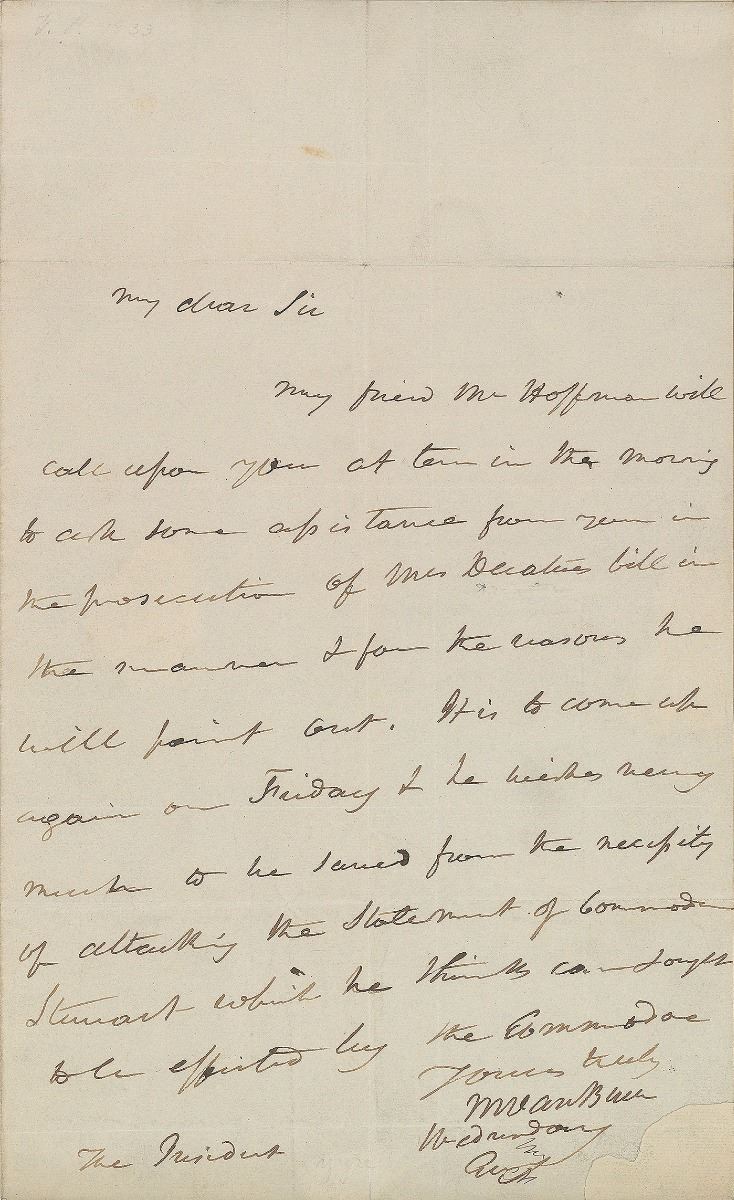 My dear Sir
My friend Mr Hoffman will
call upon you at ten in the morning
to ask some assistance from you in
the prosecution of Mrs Decaturs bill in
the manner & for the reasons he
will point out. It is to come up
again on Friday & he wishes very
much to be saved from the necessity
of attacking the Statement of Commodore
Stewart which he thinks can & ought
to be effected by the Commodore
Yours truly
M Van Buren
Wednesday
The President